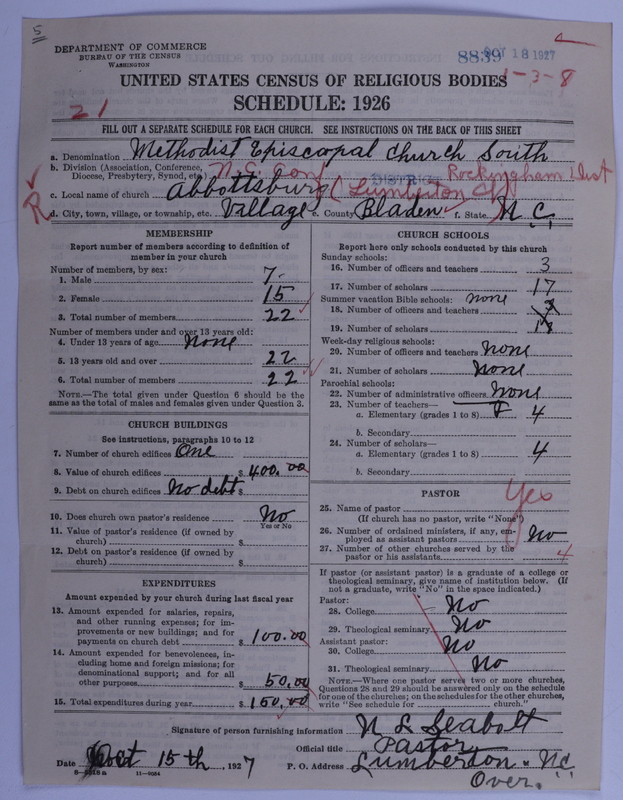 5
DEPARTMENT OF COMMERCE
BUREAU OF THE CENSUS
WASHINGTON
8839 OCT 18 1927
1-3-8
UNITED STATES CENSUS OF RELIGIOUS BODIES
SCHEDULE: 1926
21
FILL OUT A SEPARATE SCHEDULE FOR EACH CHURCH. SEE INSTRUCTIONS ON THE BACK OF THIS SHEET
a. Denomination Methodist Episcopal Church South
b. Division (Association, Conference, Diocese, Presbytery, Synod, etc.) N.C. Con DISTRICT Rockingham Dist
c. Local name of church Abbottsburg (Lumberton
R
d. City, town, village, or township, etc. Village e. County Bladen f. State N C
MEMBERSHIP
Report number of members according to definition of
member in your church
Number of members, by sex:
1. Male 7-
2. Female 15
3. Total number of members 22
Number of members under and over 13 years old:
4. Under 13 years of age None
5. 13 years old and over 22
6. Total number of members 22
NOTE.—The total given under Question 6 should be
same as the total of males and females given under Question 3.
CHURCH BUILDINGS
See instructions, paragraphs 10 to 12
7. Number of church edifices One
8. Value of church edifices $ 400.00
9. Debt on church edifices No debt $
10. Does church own pastor's residence No
Yes or No
11. Value of pastor's residence (if owned by
church) $
12. Debt on pastor's residence (if owned by
church) $
EXPENDITURES
Amount expended by your church during last fiscal year
13. Amount expended for salaries, repairs,
and other running expenses; for im-
provements or new buildings; and for
payments on church debt $ 100.00
14. Amount expended for benevolences, in-
cluding home and foreign missions; for
denominational support; and for all
other purposes $ 50.00
15. Total expenditures during year $ 150.00
CHURCH SCHOOLS
Report here only schools conducted by this church
Sunday schools:
16. Number of officers and teachers 3
17. Number of scholars 17
Summer vacation Bible schools: none
18. Number of officers and teachers
19. Number of scholars
Week-day religious schools:
20. Number of officers and teachers none
21. Number of scholars None
Parochial schools:
22. Number of administrative officers none
23. Number of teachers—
a. Elementary (grades 1 to 8) 4
b. Secondary
24. Number of scholars—
a. Elementary (grades 1 to 8) 4
b. Secondary
PASTOR
Yes
25. Name of pastor
(If church has no pastor, write "None")
26. Number of ordained ministers, if any, em-
ployed as assistant pastors No
27. Number of other churches served by the
pastor or his assistants 4
If pastor (or assistant pastor) is a graduate of a college or
theological seminary, give name of institution below. (If
not a graduate, write "No" in the space indicated.)
Pastor:
28. College No
29. Theological seminary No
Assistant pastor:
30. College No
31. Theological seminary No
NOTE.—Where one pastor serves two or more churches,
Questions 28 and 29 should be answered only on the schedule
for one of the churches; on the schedules for the other churches,
write "See schedule for church."
Signature of person furnishing information N L Seabolt
Official title Pastor
Date Oct 15th, 1927 P. O. Address Lumberton NC
11—9054
Over.